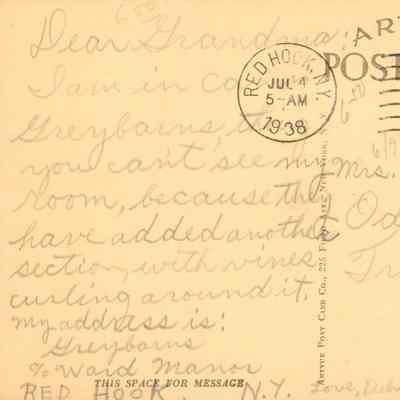 Dear Grandma:
I am in
Greybarns,
you can't see my
room, because they
have added another
section, with vines
curling around it.
My address is:
Greybarns
% Ward Manor
RED HOOK, N.Y.
THIS SPACE FOR MESSAGE
RED HOOK, N.Y.
JUL 4
5-AM
1938
ART
POST
Mrs.
Love,
ARTVUE POST CARD CO., 225 FIFTH AVE., NEW YORK, N.Y.